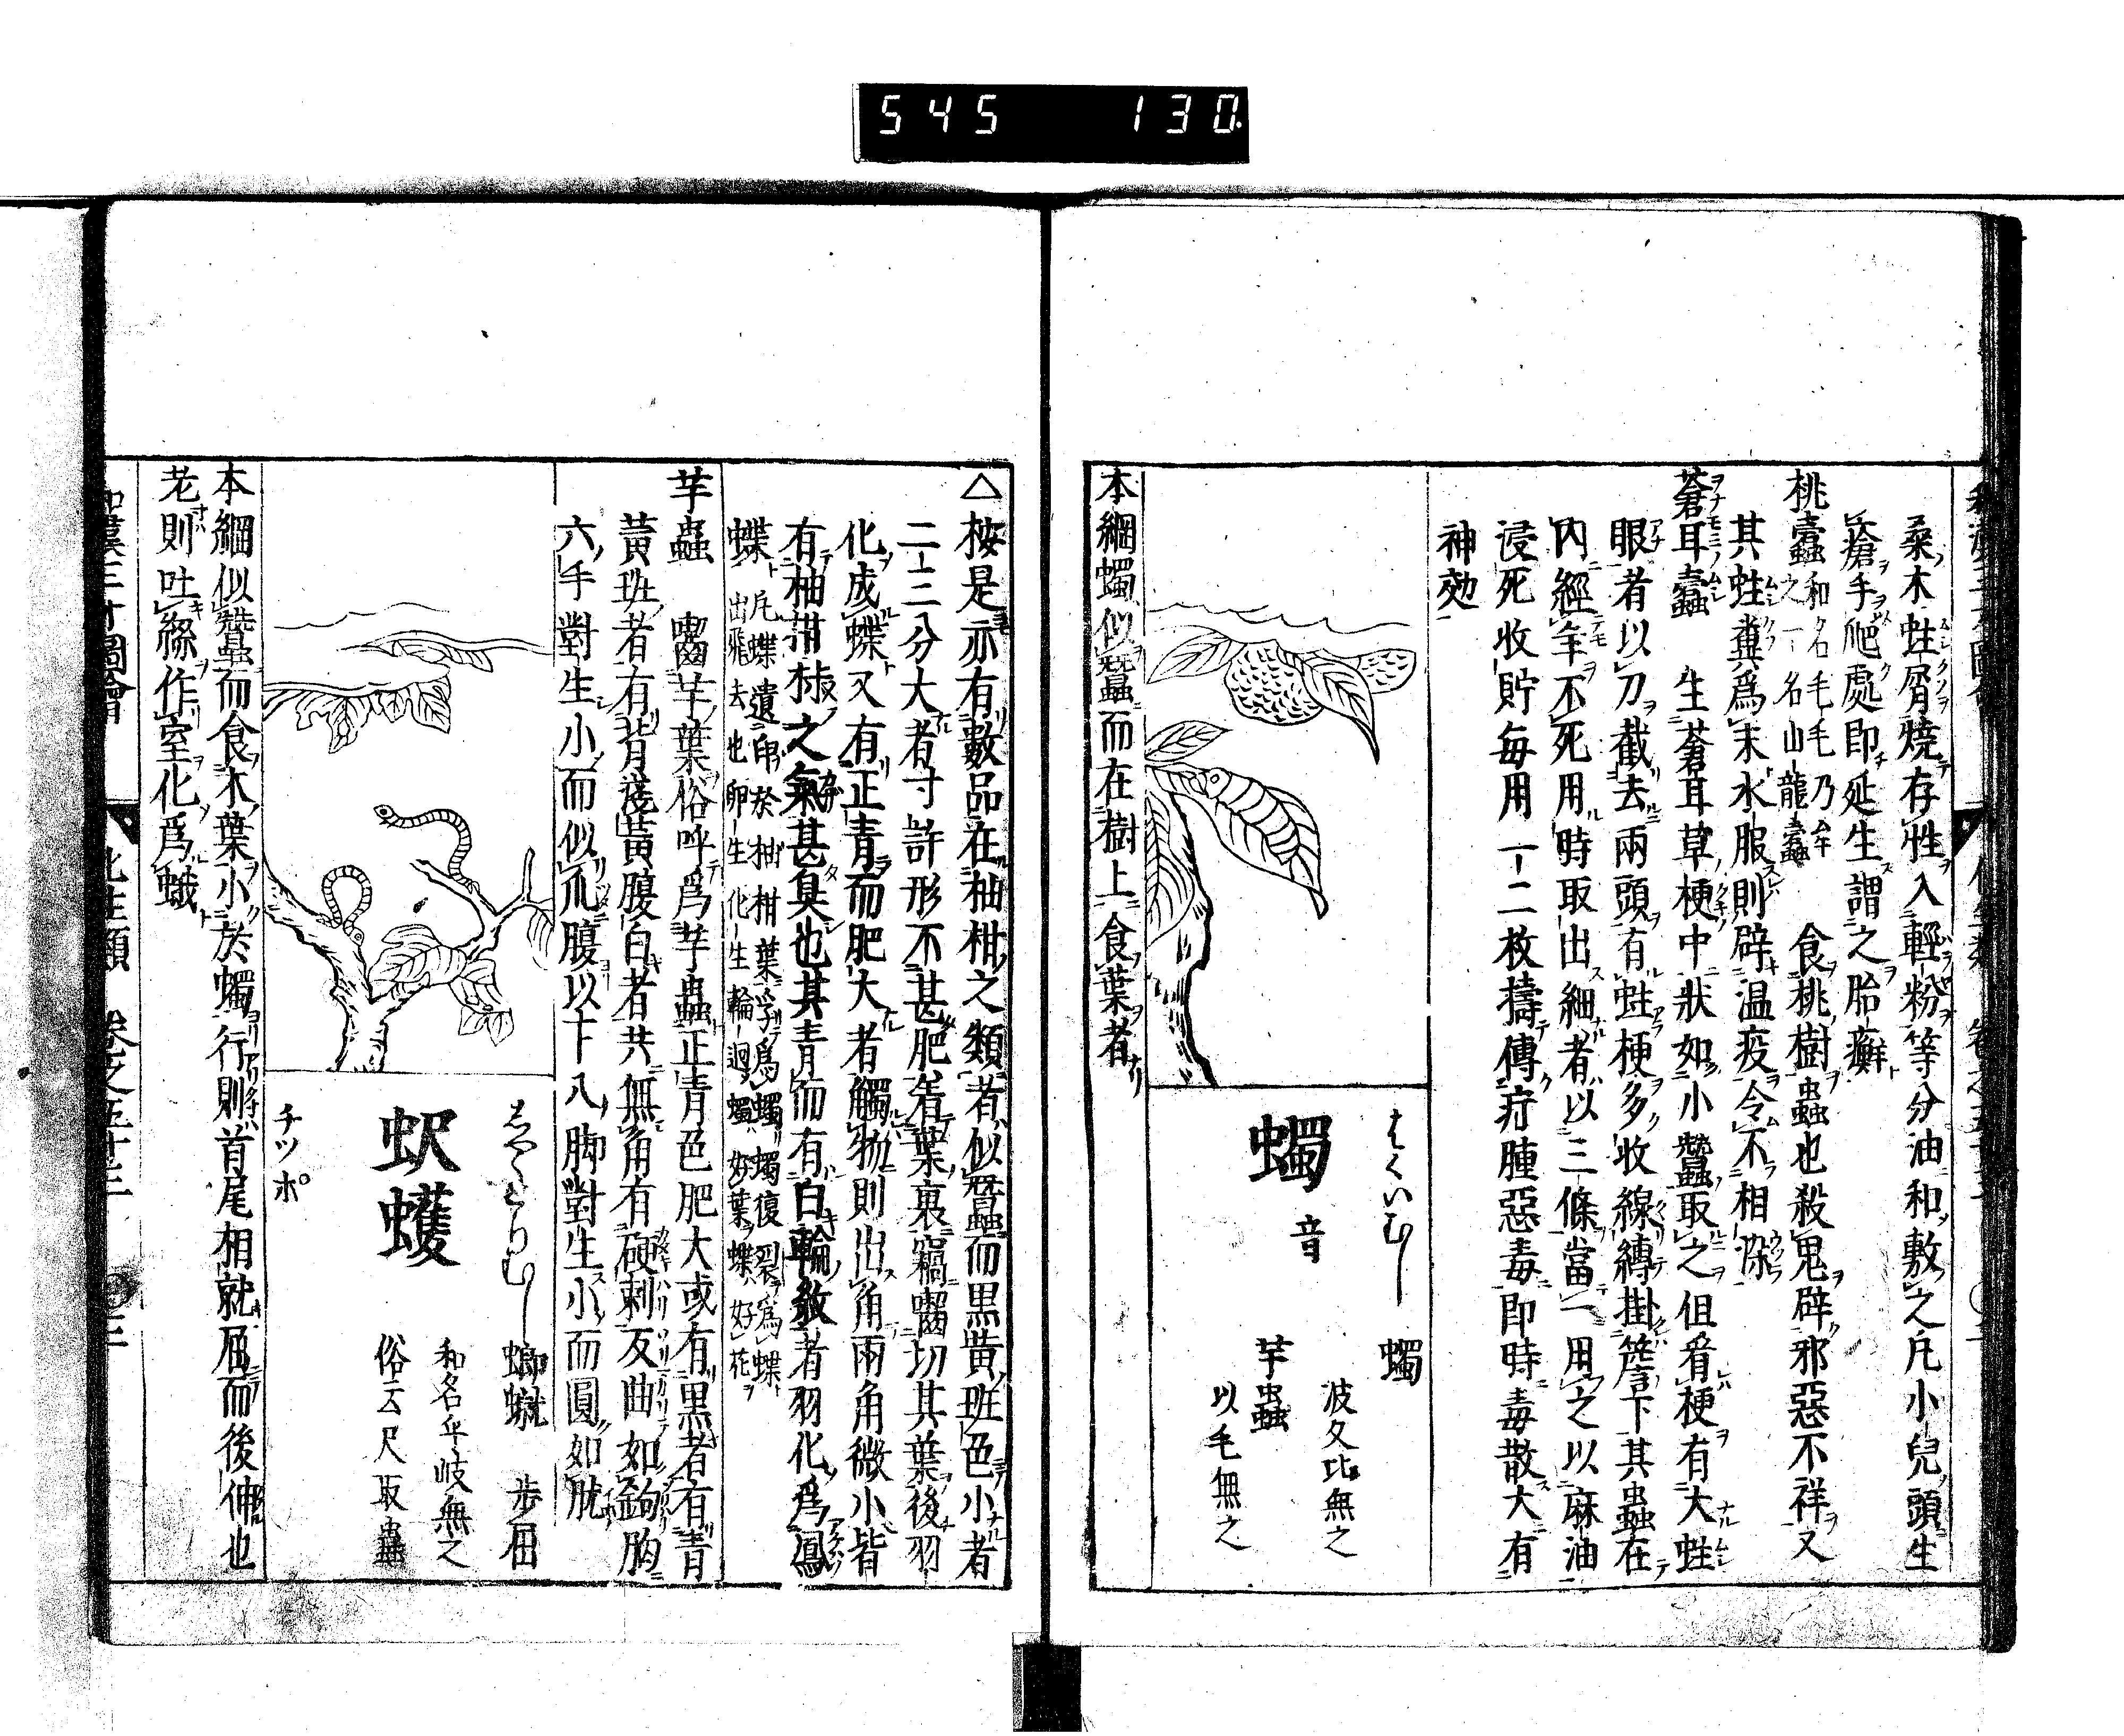 545 130
桑木蛀屑燒存性入輕粉等分油和敷之凡小兒頭生
瘡手爬處即延生謂之胎癬
桃蠹 和名毛毛乃牟之一名山龍蠹 食桃樹蟲也殺鬼辟邪惡不祥又
其蛀糞爲末水服則辟温疫令不相染
蒼耳蠹 生蒼耳草梗中狀如小蠶取之但看梗有大蛀
眼者以刀截去兩頭有蛀梗多收線縛掛簷下其蟲在
內經年不死用時取出細者以三條當一用之以麻油
浸死收貯每用一二枚擣傅疔腫惡毒即時毒散大有
神効
はくいむし
蠋 音蜀
波久比無之
芋蟲
以毛無之
本綱蠋似蠶而在樹上食葉者
△按是亦有數品在柚柑之類者似蠶而黒黄班色小者
二三分大者寸許形不甚肥着葉裏竊囓切其葉後羽
化成蝶又有正青而肥大者觸物則出角兩角微小皆
有柚柑材之氣甚臭也其青而有白輪紋者羽化爲鳳
蝶 凡蝶遺卵於柚柑葉孚爲蠋蠋復裂爲蝶
出飛去也卵生化生輪迴蠋好葉蝶好花
芋蟲 囓芋葉俗呼爲芋蟲正青色肥大或有黒者有青
黄班者有背淺黄腹白者共無角有硬刺反曲如鉤胸
六手對生小而似爪腹以下八脚對生小而圓如肬
しやくとりむし
蚇蠖
蝍蝛 步屈
和名乎岐無之
俗云尺取蟲
チツ ポ
本綱似蠶而食木葉小於蠋行則首尾相就屈而後伸也
老則吐絲作室化爲蛾
和漢三才圖會 化生類 卷之五十三 三